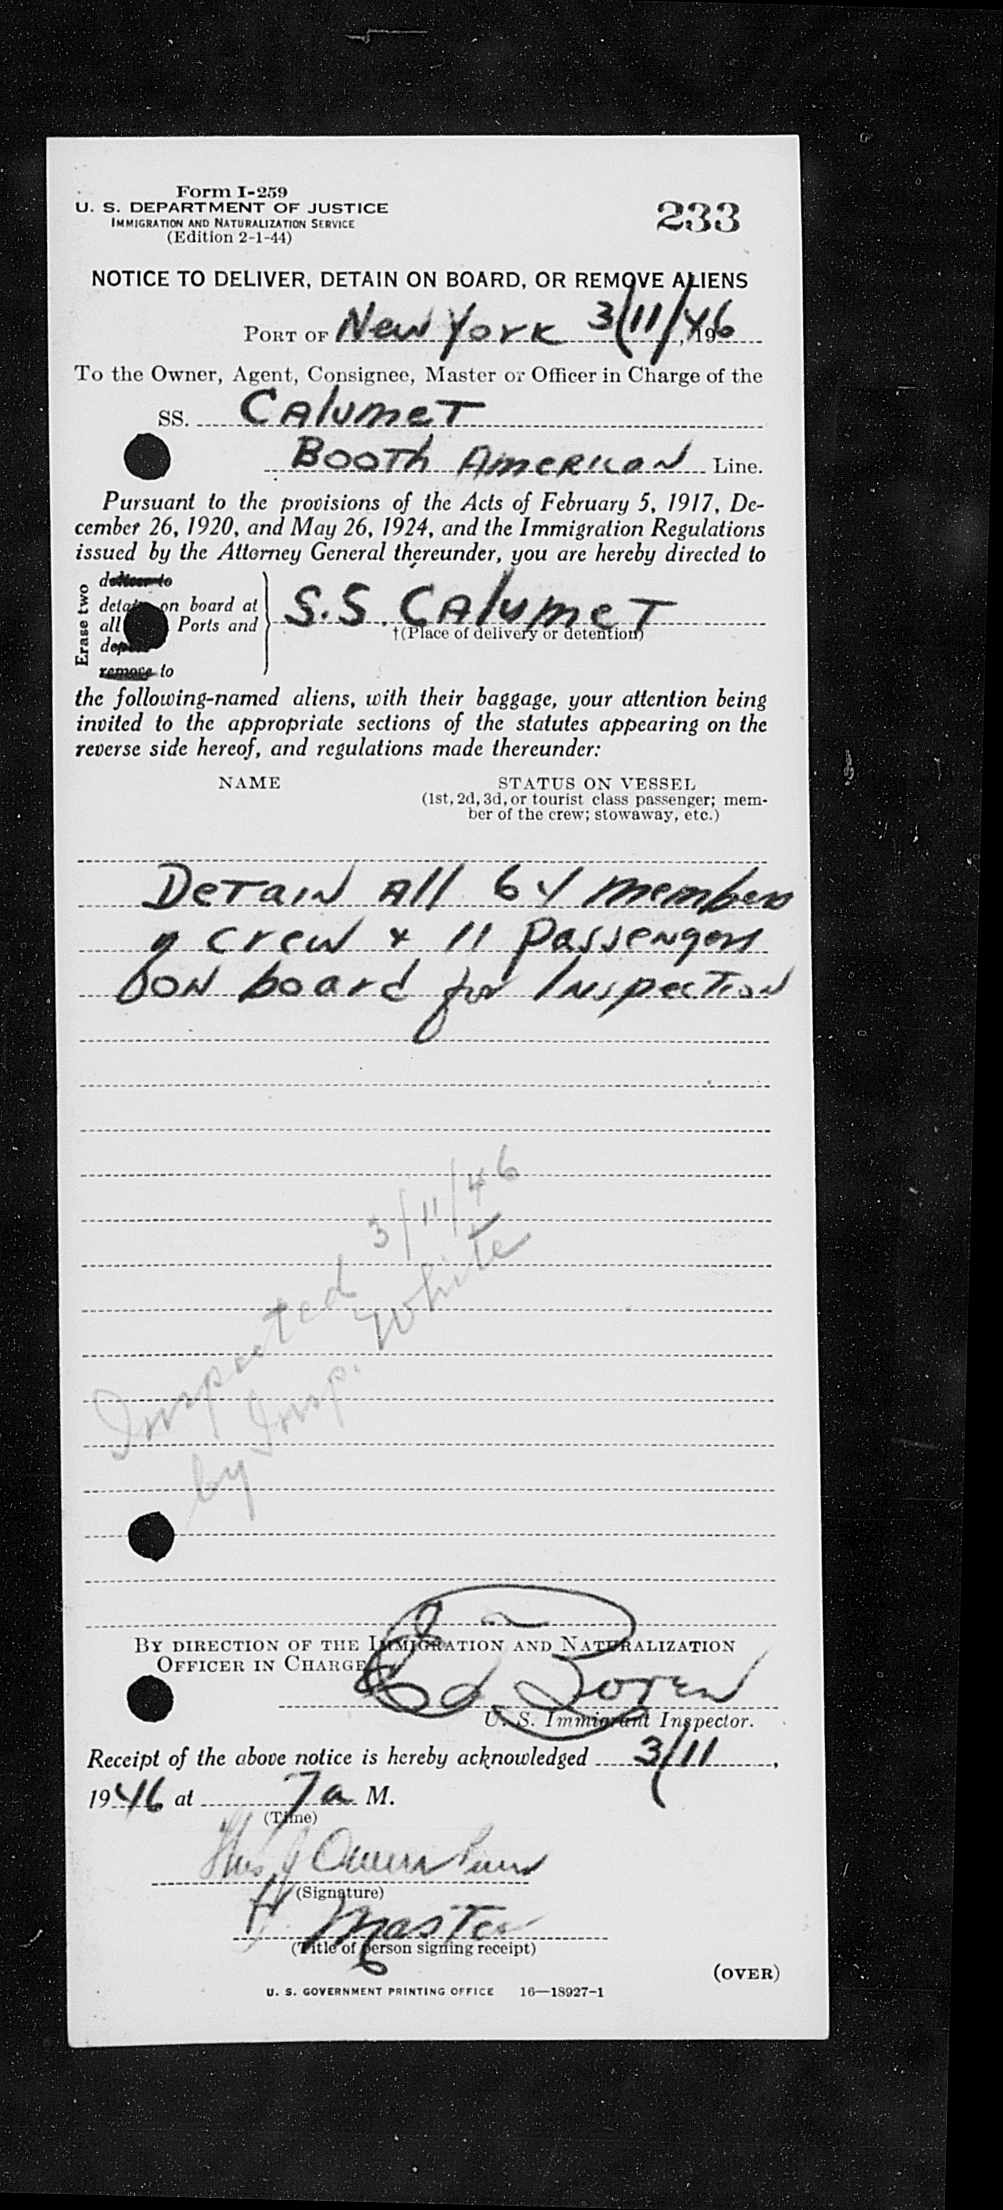 Form I-259
U. S. DEPARTMENT OF JUSTICE
IMMIGRATION AND NATURALIZATION SERVICE
(Edition 2-1-44)
233
NOTICE TO DELIVER, DETAIN ON BOARD, OR REMOVE ALIENS
PORT OF New York 3/11/46, 19
To the Owner, Agent, Consignee, Master or Officer in Charge of the
SS. Calumet
Booth American Line.
Pursuant to the provisions of the Acts of February 5, 1917, De-
cember 26, 1920, and May 26, 1924, and the Immigration Regulations
issued by the Attorney General thereunder, you are hereby directed to
Erase two
deliver to
detain on board at
all Ports and
remove to
S.S. Calumet
†(Place of delivery or detention)
the following-named aliens, with their baggage, your attention being
invited to the appropriate sections of the statutes appearing on the
reverse side hereof, and regulations made thereunder:
NAME
STATUS ON VESSEL
(1st, 2d, 3d, or tourist class passenger; mem-
ber of the crew; stowaway, etc.)
Detain All 64 members
of crew & 11 Passengers
on board for Inspection
Inspected 3/11/46
by Insp. White
BY DIRECTION OF THE IMMIGRATION AND NATURALIZATION
OFFICER IN CHARGE
Boren
U. S. Immigrant Inspector.
Receipt of the above notice is hereby acknowledged 3/11,
1946 at 7 a M.
(Time)
Owen
(Signature)
Master
(Title of person signing receipt)
(OVER)
U. S. GOVERNMENT PRINTING OFFICE 16—18927-1